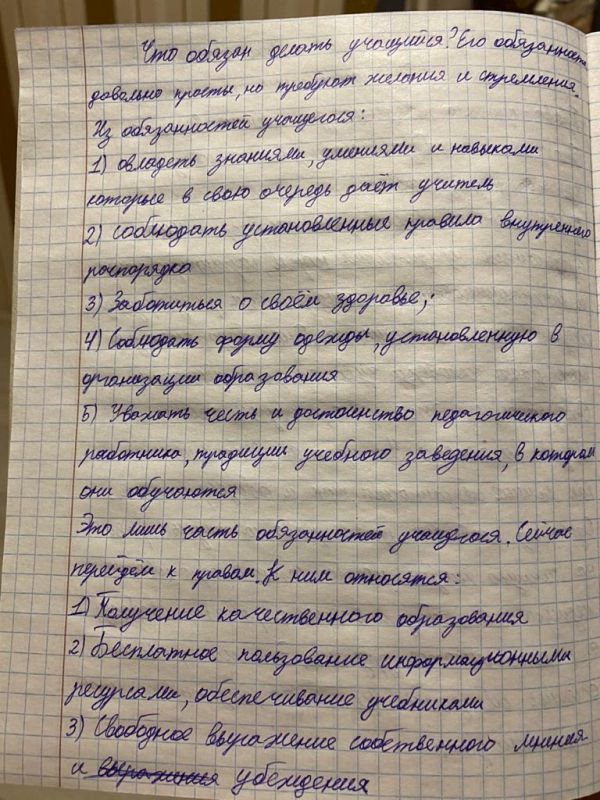 Что обязан делать учащийся? Его обязанности
довольно просты, но требуют желания и стремления.
Из обязанностей учащегося:
1) овладеть знаниями, умениями и навыками
которые в свою очередь даёт учитель
2) соблюдать установленные правила внутреннего
распорядка
3) Заботиться о своём здоровье;
4) Соблюдать форму одежды, установленную в
организации образования
5) Уважать честь и достоинство педагогического
работника, традиции учебного заведения, в котором
они обучаются
Это лишь часть обязанностей учащегося. Сейчас
перейдём к правам. К ним относятся:
1) Получение качественного образования
2) Бесплатное пользование информационными
ресурсами, обеспечивание учебниками
3) Свободное выражение собственного мнения
и выражения убеждения